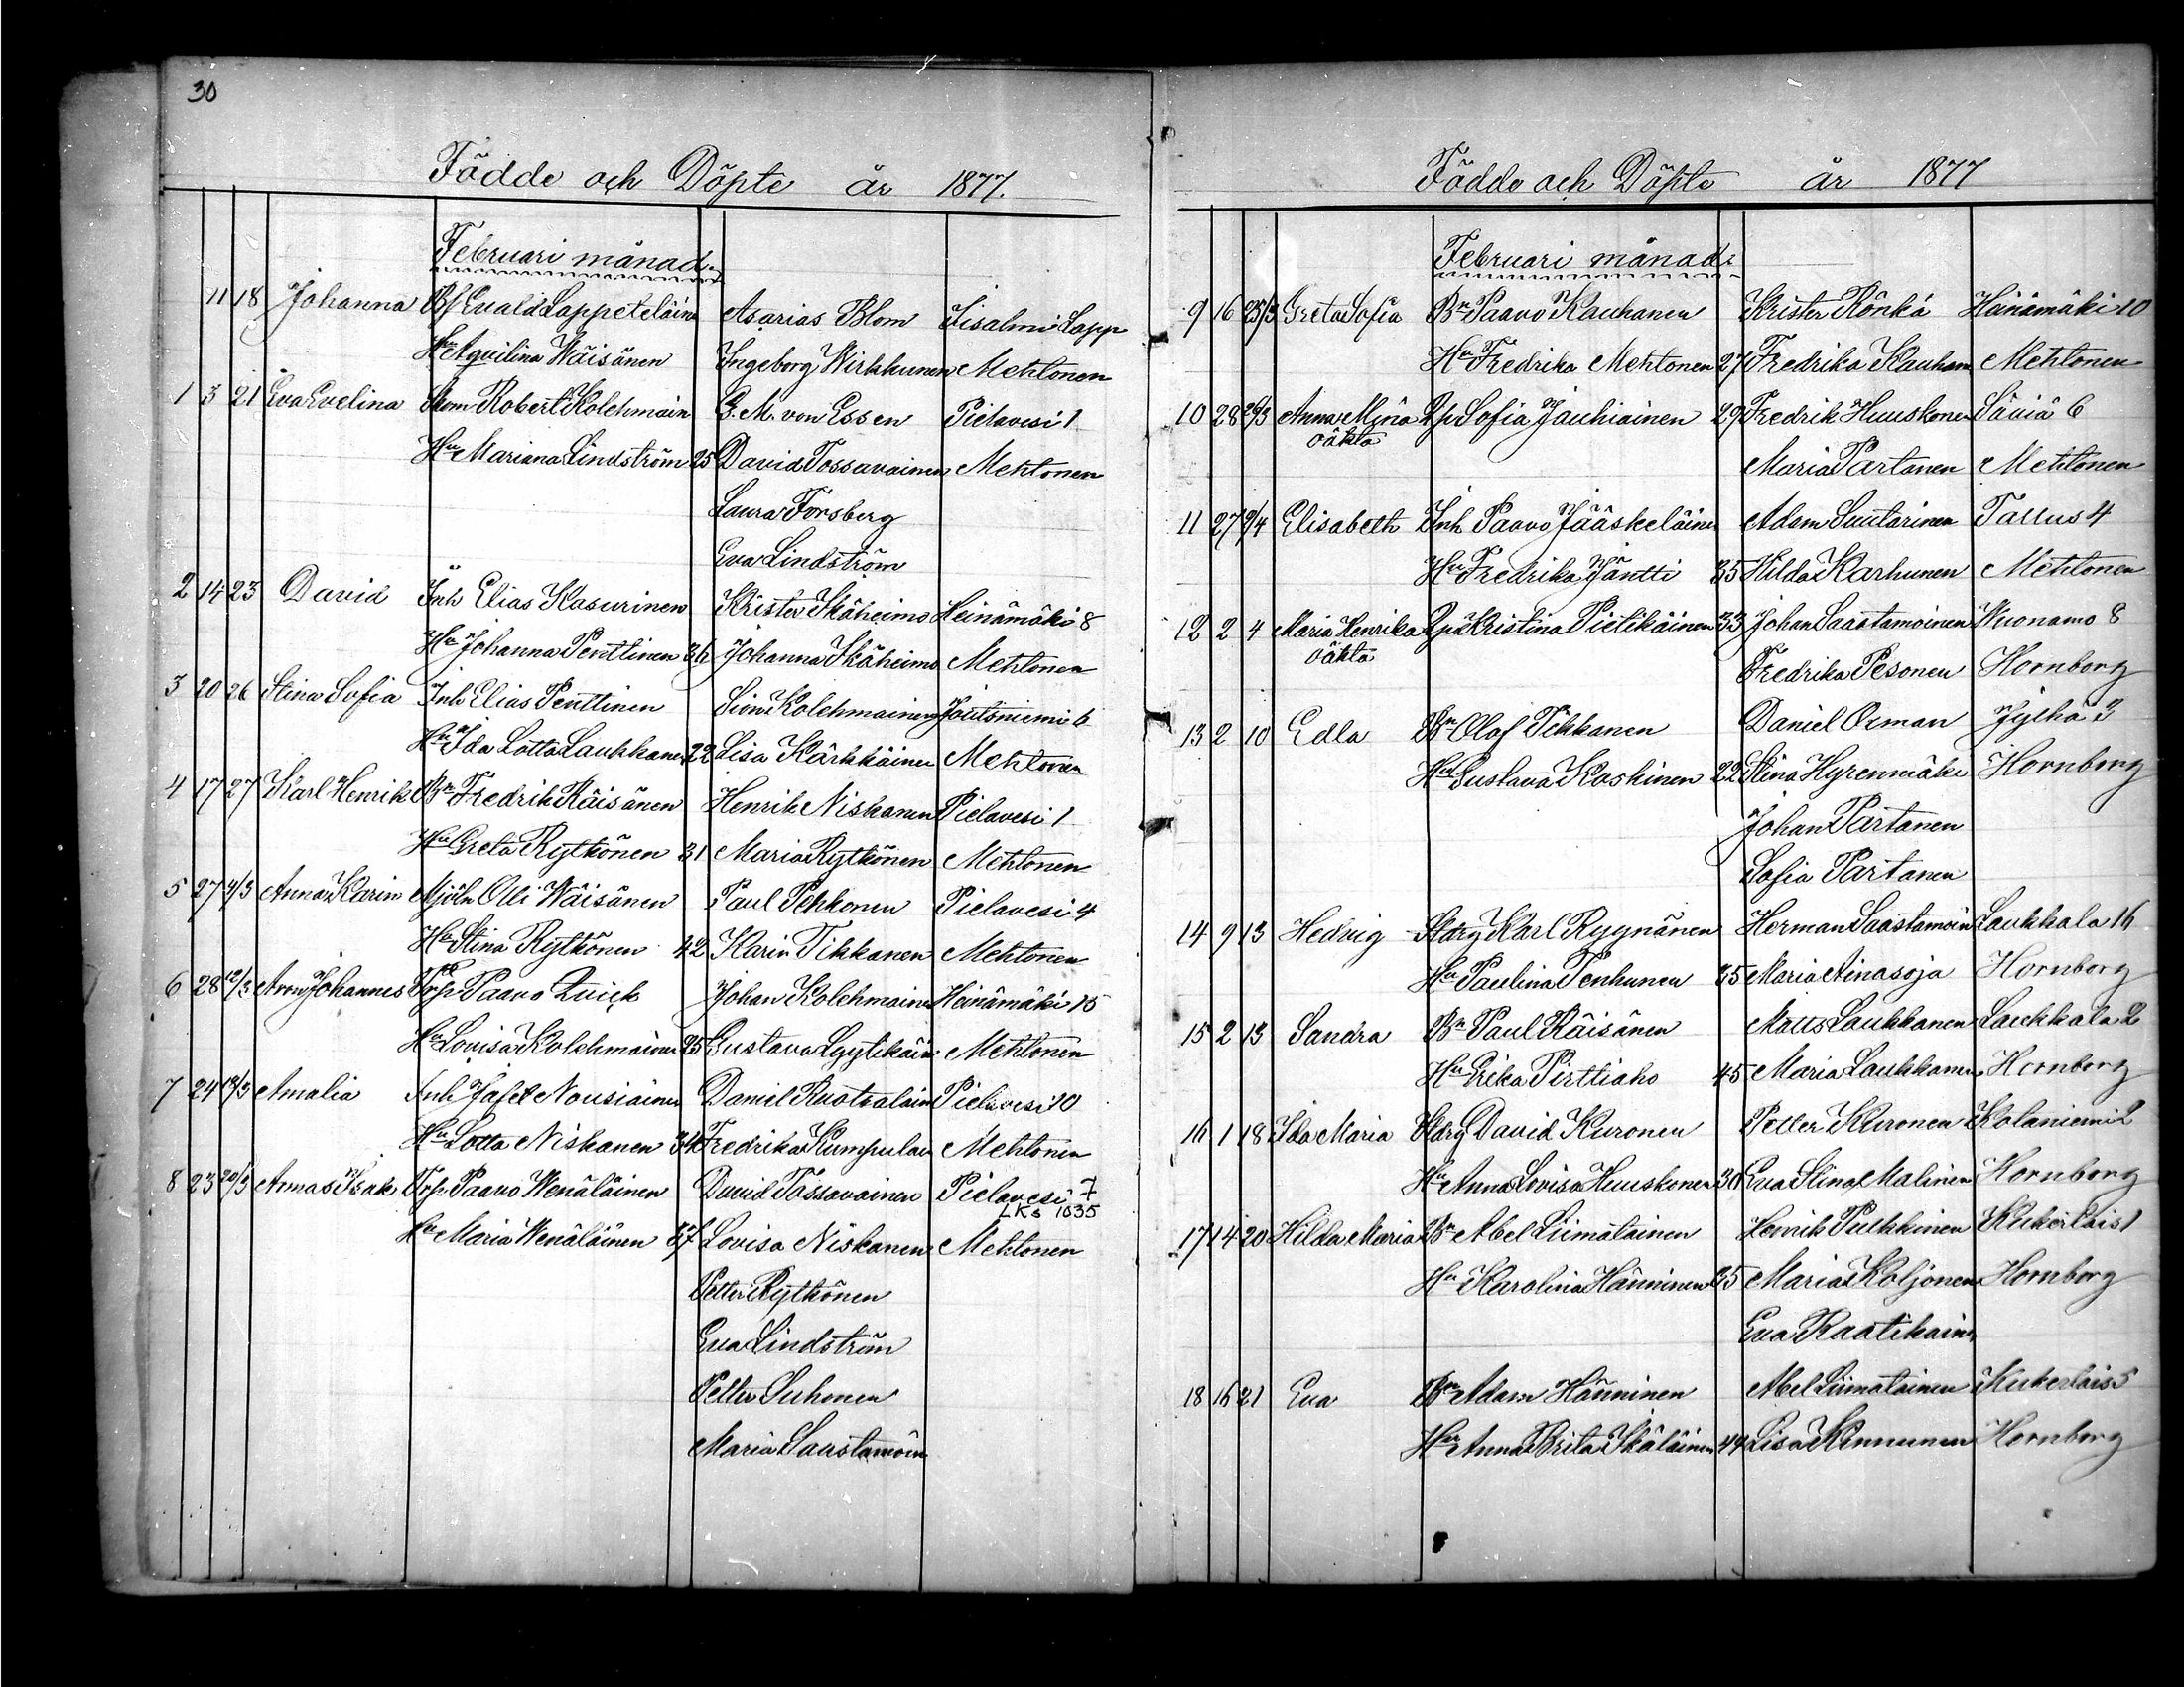 30
Födde och Döpte år 1877.
Februari månad.
11 18 Johanna Bf Evald Lappeteläin Asarias Blom Iisalmi Lapp
Hu Aqvilina Wäisänen Ingeborg Wirkkunen Mehtonen
1 3 21 Eva Evelina Skom Robert Kolehmain G. M. von Essen Pielavesi 1
Hu Mariana Lindström 25 David Tossavainen Mehtonen
Laura Forsberg
Eva Lindström
2 14 23 David Inh Elias Kasurinen Krister Skäheimo Heinämäki 8
Hu Johanna Penttinen 36 Johanna Skäheimo Mehtonen
3 20 26 Stina Sofia Inh Elias Penttinen Sion Kolehmainen Joutsniemi 6
Hu Ida Lotta Laukkanen 22 Lisa Kärkkäinen Mehtonen
4 17 27 Karl Henrik Bn Fredrik Räisänen Henrik Niskanen Pielavesi 1
Hu Greta Rytkönen 31 Maria Rytkönen Mehtonen
5 27 4/3 Anna Karin Mjöln Olli Wäisänen Paul Pekkonen Pielavesi 4
Hu Stina Rytkönen 42 Karin Tikkanen Mehtonen
6 28 12/3 Aron Johannes Torp Paavo Quick Johan Kolehmainen Heinämäki 15
Hu Lovisa Kolehmainen 25 Gustava Lyytikäin Mehtonen
7 24 18/3 Amalia Inh Jafet Nousiainen Daniel Ruotsalain Pielavesi 20
Hu Lotta Niskanen 34 Fredrika Kumpulai Mehtonen
8 23 20/3 Armas Isak Torp Paavo Wenäläinen David Tossavainen Pielavesi 7
LKs 1035
Hu Maria Wenäläinen 37 Lovisa Niskanen Mehtonen
Petter Rytkönen
Eva Lindström
Petter Suhonen
Maria Saastamoin
Födde och Döpte år 1877
Februari månad:
9 16 25/3 Greta Sofia Bn Paavo Kauhanen Krister Rönkä Heinämäki 10
Hu Fredrika Mehtonen 27 Fredrika Kauhan Mehtonen
10 28 29/3 Anna Mina Qp Sofia Jauhiainen 29 Fredrik Huuskonen Säviä 6
oäkta
Maria Partanen Mehtonen
11 27 9/4 Elisabeth Inh Paavo Jääskeläine Adam Suutarinen Tallus 4
Hu Fredrika Jäntti 35 Hilda Karhunen Mehtonen
12 2 4 Maria Henrika Qp Kristina Pietikäinen 33 Johan Saastamoinen Wuonamo 8
oäkta
Fredrika Pesonen Hornborg
13 2 10 Edla Bn Olof Tikkanen Daniel Orman Jylhä 2
Hu Gustava Koskinen 22 Stina Hyrenmäki Hornborg
Johan Partanen
Sofia Partanen
14 9 13 Hedvig Hdrg Karl Ryynänen Herman Saastamoin Laukkala 16
Hu Paulina Tenhunen 35 Maria Ainasoja Hornborg
15 2 13 Sandra Bn Paul Räisänen Matts Laukkanen Laukkala 2
Hu Erika Pirttiaho 45 Maria Laukkanen Hornborg
16 1 18 Ida Maria Hdrg David Kuronen Petter Kuronen Kolaniemi 2
Hu Anna Lovisa Huuskonen 30 Eva Stina Malinen Hornborg
17 14 20 Hilda Maria Bn Abel Liimatainen Henrik Pulkkinen Kukerlais 1
Hu Karolina Hänninen 35 Maria Koljonen Hornborg
Eva Raatikaine
18 16 21 Eva Bn Adam Hänninen Abel Liimatainen Kukerlais 5
Hu Anna Brita Ikäläinen 44 Lisa Kinnunen Hornborg